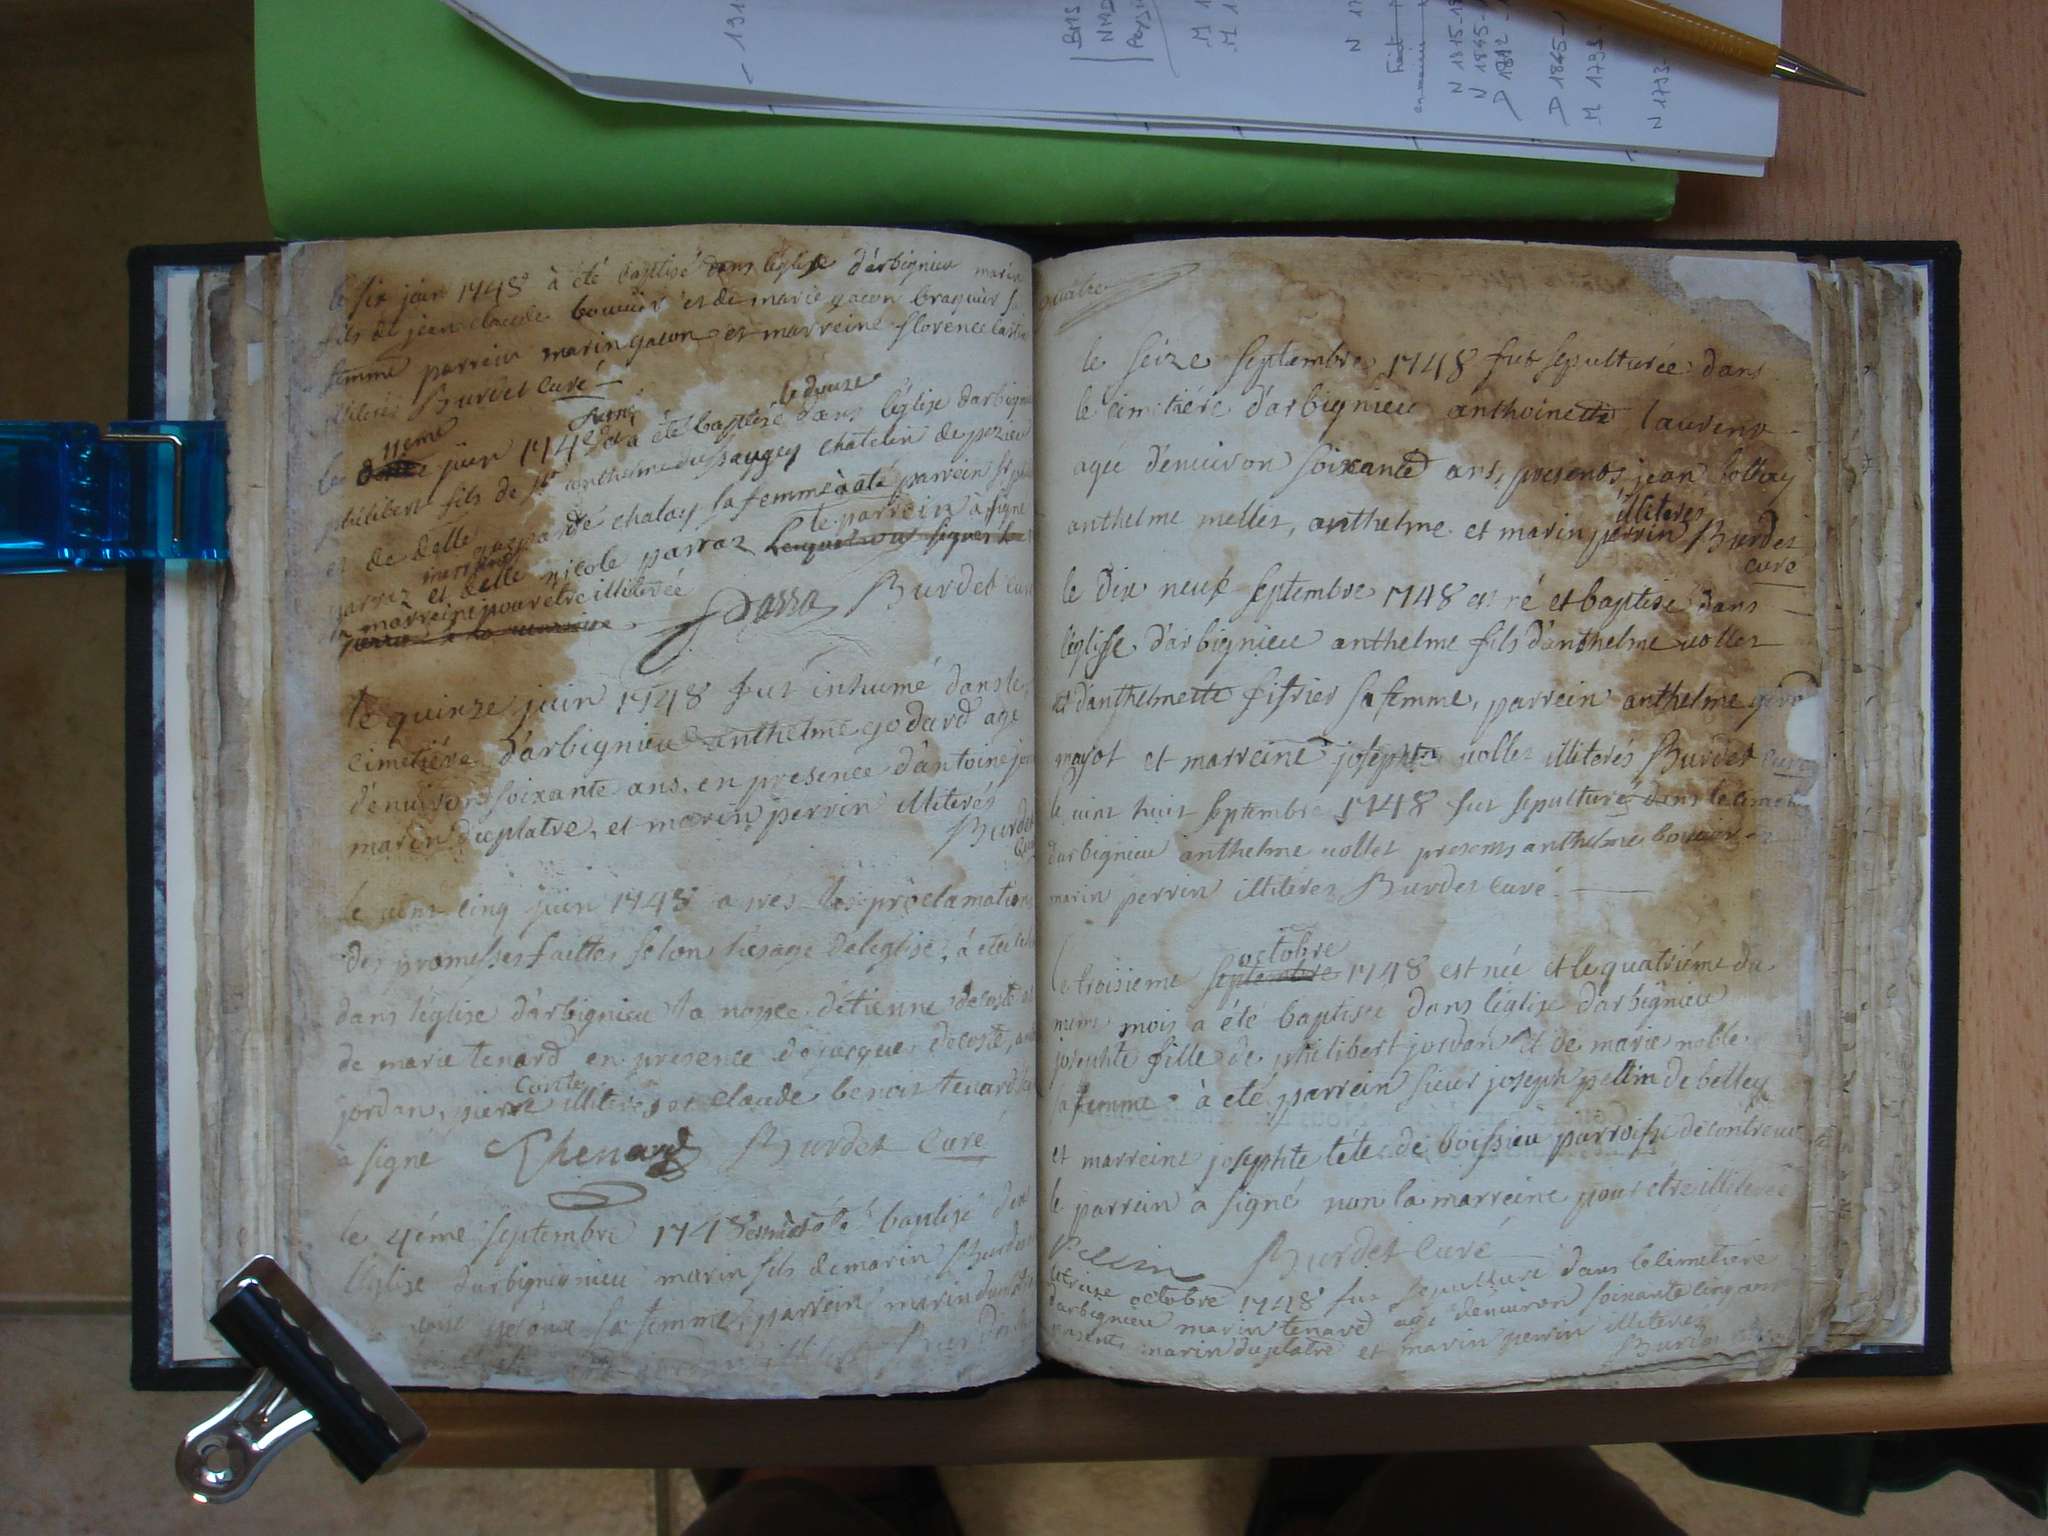 1815
N 1845
1812
1845
M 1793
N 1793
le six juin 1748 à été baptisé dans léglise d'arbignieu marin
fils de jean claude bouvier et de marie gacon braquier sa
femme parrein marin gacon et marreine florence
illiterés Burdet Curé
le 11eme juin 1748 à été baptisé le douze dans l'église darbignieu
philibert fils de Sr anthelme dussaugey chatelin de
et de delle gasparde chalay sa femme à été parrein Sr
parraz et delle nicole parraz le parrein à signé
la marreine pour etre illiterée
Parra Burdet Curé
le quinze juin 1748 fut inhumé dans le
cimetiére d'arbignieu anthelme godard agé
d'environ soixante ans, en presence d'antoine
marin duplatre, et marin perrin illiterés
Burdet
Curé
le vint cinq juin 1748 apres les proclamations
des promesses faittes selon l'usage de leglise, à eté
dans l'église d'arbignieu la nopce d'etienne decoste et
de marie tenard en presence de jacques decoste,
jordan, pierre Conte illiterés et claude benoit tenard
à signé Thenard Burdet Curé
le 4éme septembre 1748 est né et été baptisé dans
l'église darbignignieu marin fils de marin Burdet
sa femme, parrein marin
quatre
le seize septembre 1748 fut sepulturée dans
le cimetiére d'arbignieu anthoinette laurent
agée d'environ soixante ans, presents jean
anthelme mellet, anthelme et marin perrin illiterés Burdet
curé
le dix neuf septembre 1748 est né et baptisé dans
l'église d'arbignieu anthelme fils d'anthelme vollet
et d'anthelmette fitrier sa femme, parrein anthelme
mayot et marreine josephte vollet illiterés Burdet Curé
le vint huit septembre 1748 fut sepulturé dans le
darbignieu anthelme vollet presents anthelme bouvier et
marin perrin illiterés Burdet Curé
le troisieme septembre octobre 1748 est née et le quatriéme du
meme mois a été baptisée dans l'église d'arbignieu
josephte fille de philibert jordan et de marie noble
sa femme à eté parrein sieur joseph pellin de belley
et marreine josephte téte de boissieu parroisse de contrevoz
le parrein a signé non la marreine pour étre illiterée
Pellin Burdet Curé
le treize octobre 1748 fut sepulturé dans le cimetiére
d'arbignieu marin tenard agé denviron soixante cinq ans
presents marin duplatre et marin perrin illiterés
Burdet